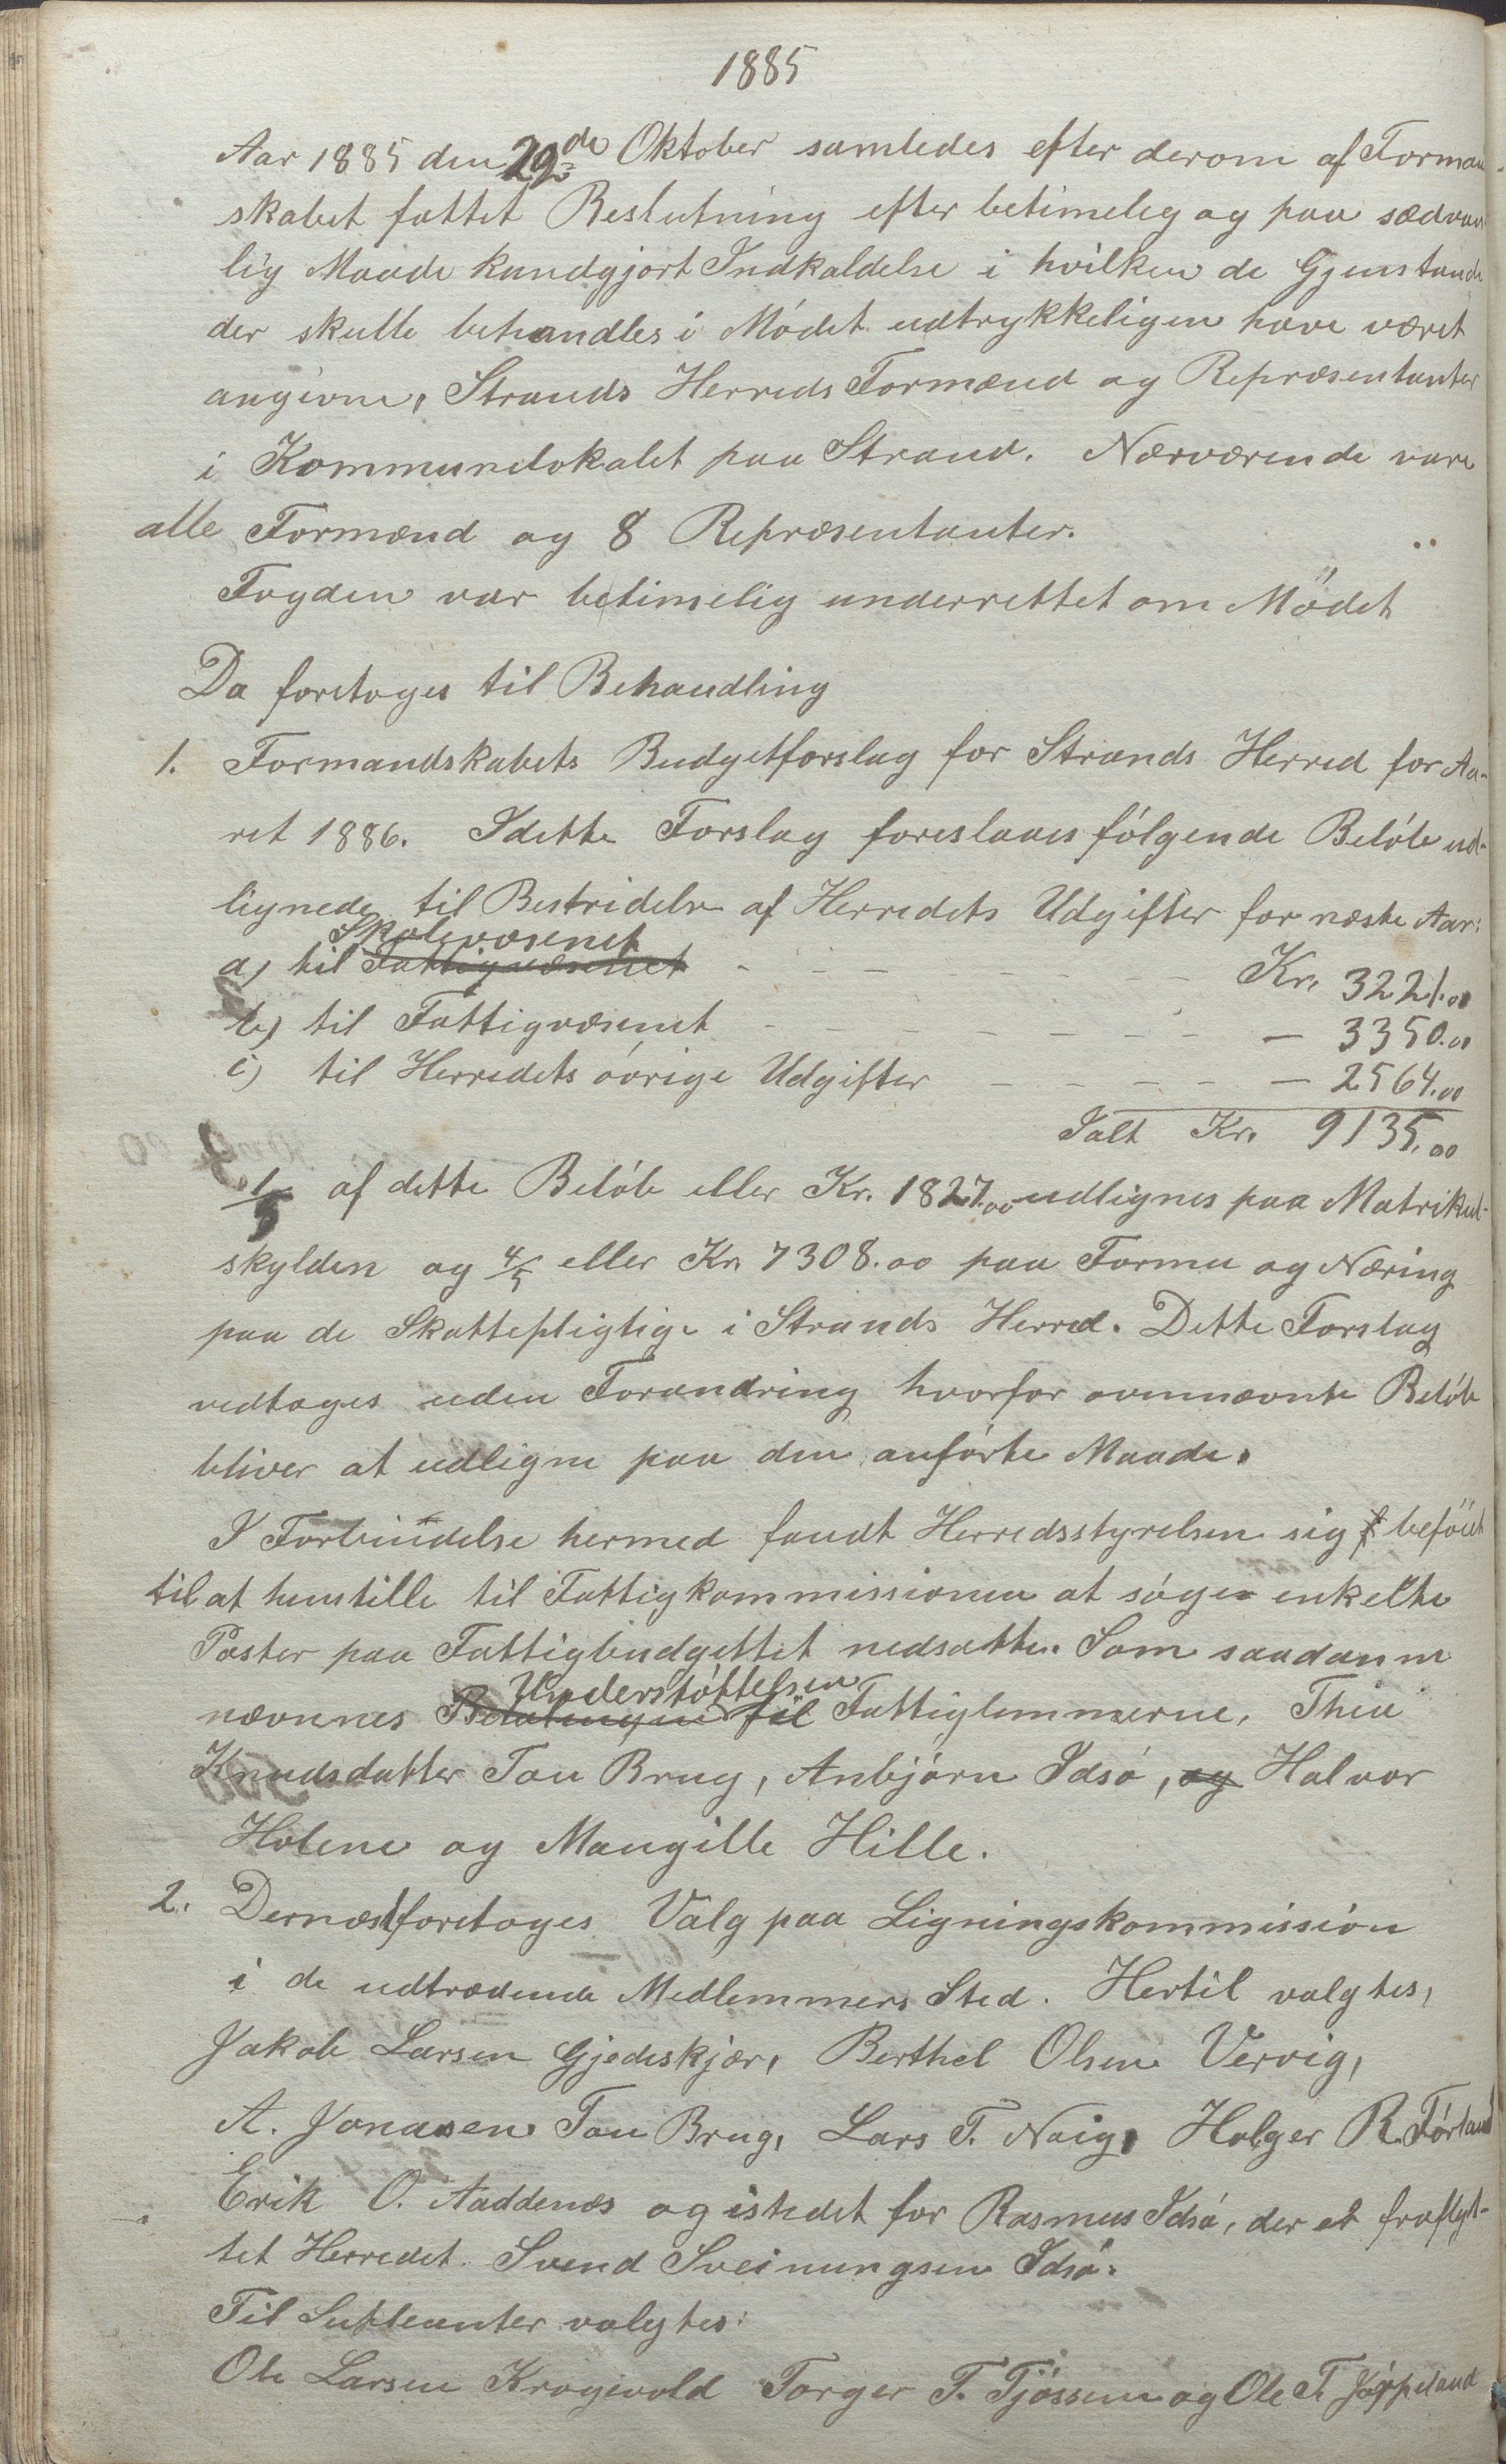 1885
Aar 1885 den 29de Oktober samledes efter derom af Forman-
skabet fattet Beslutning efter betimelig og paa sædvan-
lig Maade kundgjort Indkaldelse i hvilken de Gjenstande
der skulle behandles i Mødet udtrykkeligen have været
angivne, Strands Herreds Formænd og Repræsentanter
i Kommunelokalet paa Strand. Nærværende vare
alle Formænd og 8 Repræsentanter.
Fogden var betimelig underrettet om Mödet
Da foretoges til Behandling
1. Formandskabets Budgetforslag for Strands Herred for Aa-
ret 1886. I dette Forslag foreslaaes følgende Beløb ud-
lignede til Bestridelse af Herredets Udgifter for næste Aar:
Skolevæsenet
a) til Fattigvæsenet - - - - - - Kr. 3221.00
b) til Fattigvæsenet - - - - - - - — 3350.00
c) til Herredets øvrige Udgifter - - - - - — 2564.00
Ialt Kr. 9135.00
1/5 af dette Beløb eller Kr. 1827.00 udlignes paa Matrikul-
skylden og 4/5 eller Kr. 7308.00 paa Formu og Næring
paa de Skattepligtige i Strands Herred. Dette Forslag
vedtoges uden Forandring hvorfor ovennævnte Beløb
bliver at udligne paa den anførte Maade.
I Forbindelse hermed fandt Herredsstyrelsen sig beföiet
til at henstille til Fattigkommissionen at søge enkelte
Poster paa Fattigbudgettet nedsatte. Som saadanne
Understøttelsen
nævnes Betalingen til Fattiglemmerne, Thea
Knudsdatter Tau Brug, Anbjørn Idsø, og Halvor
Holene og Mangille Hille.
2. Dernæst foretoges Valg paa Ligningskommission
i de udtrædende Medlemmers Sted. Hertil valgtes,
Jakob Larsen Gjedeskjær, Berthel Olsen Vervig,
A. Jonasen Tau Brug, Lars T. Naig, Holger R. Førland
Erik O. Aaddenæs og istedet for Rasmus Idsø, der et fraflyt-
tet Herredet. Svend Sveinungsen Idsø.
Til Supleanter valgtes:
Ole Larsen Krogevold Torger T. Tjøssem og Ole T. Jøpeland